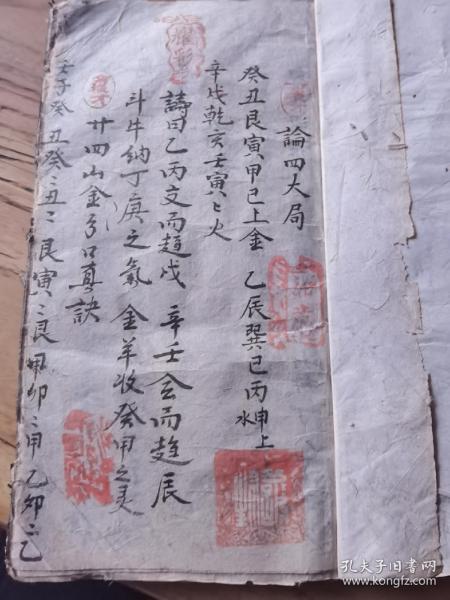 論四大局
癸丑艮寅甲巳上金 乙辰巽巳丙申上水
辛戌乾亥壬寅〻火
詩曰乙丙交而趨戌 辛壬会而趨辰
斗牛纳丁庚之氣 金羊收癸甲之灵
廿四山金 口真訣
壬子癸丑癸〻丑〻艮寅〻艮甲卯〻甲乙卯〻乙
孔夫子旧书网
www.kongfz.com